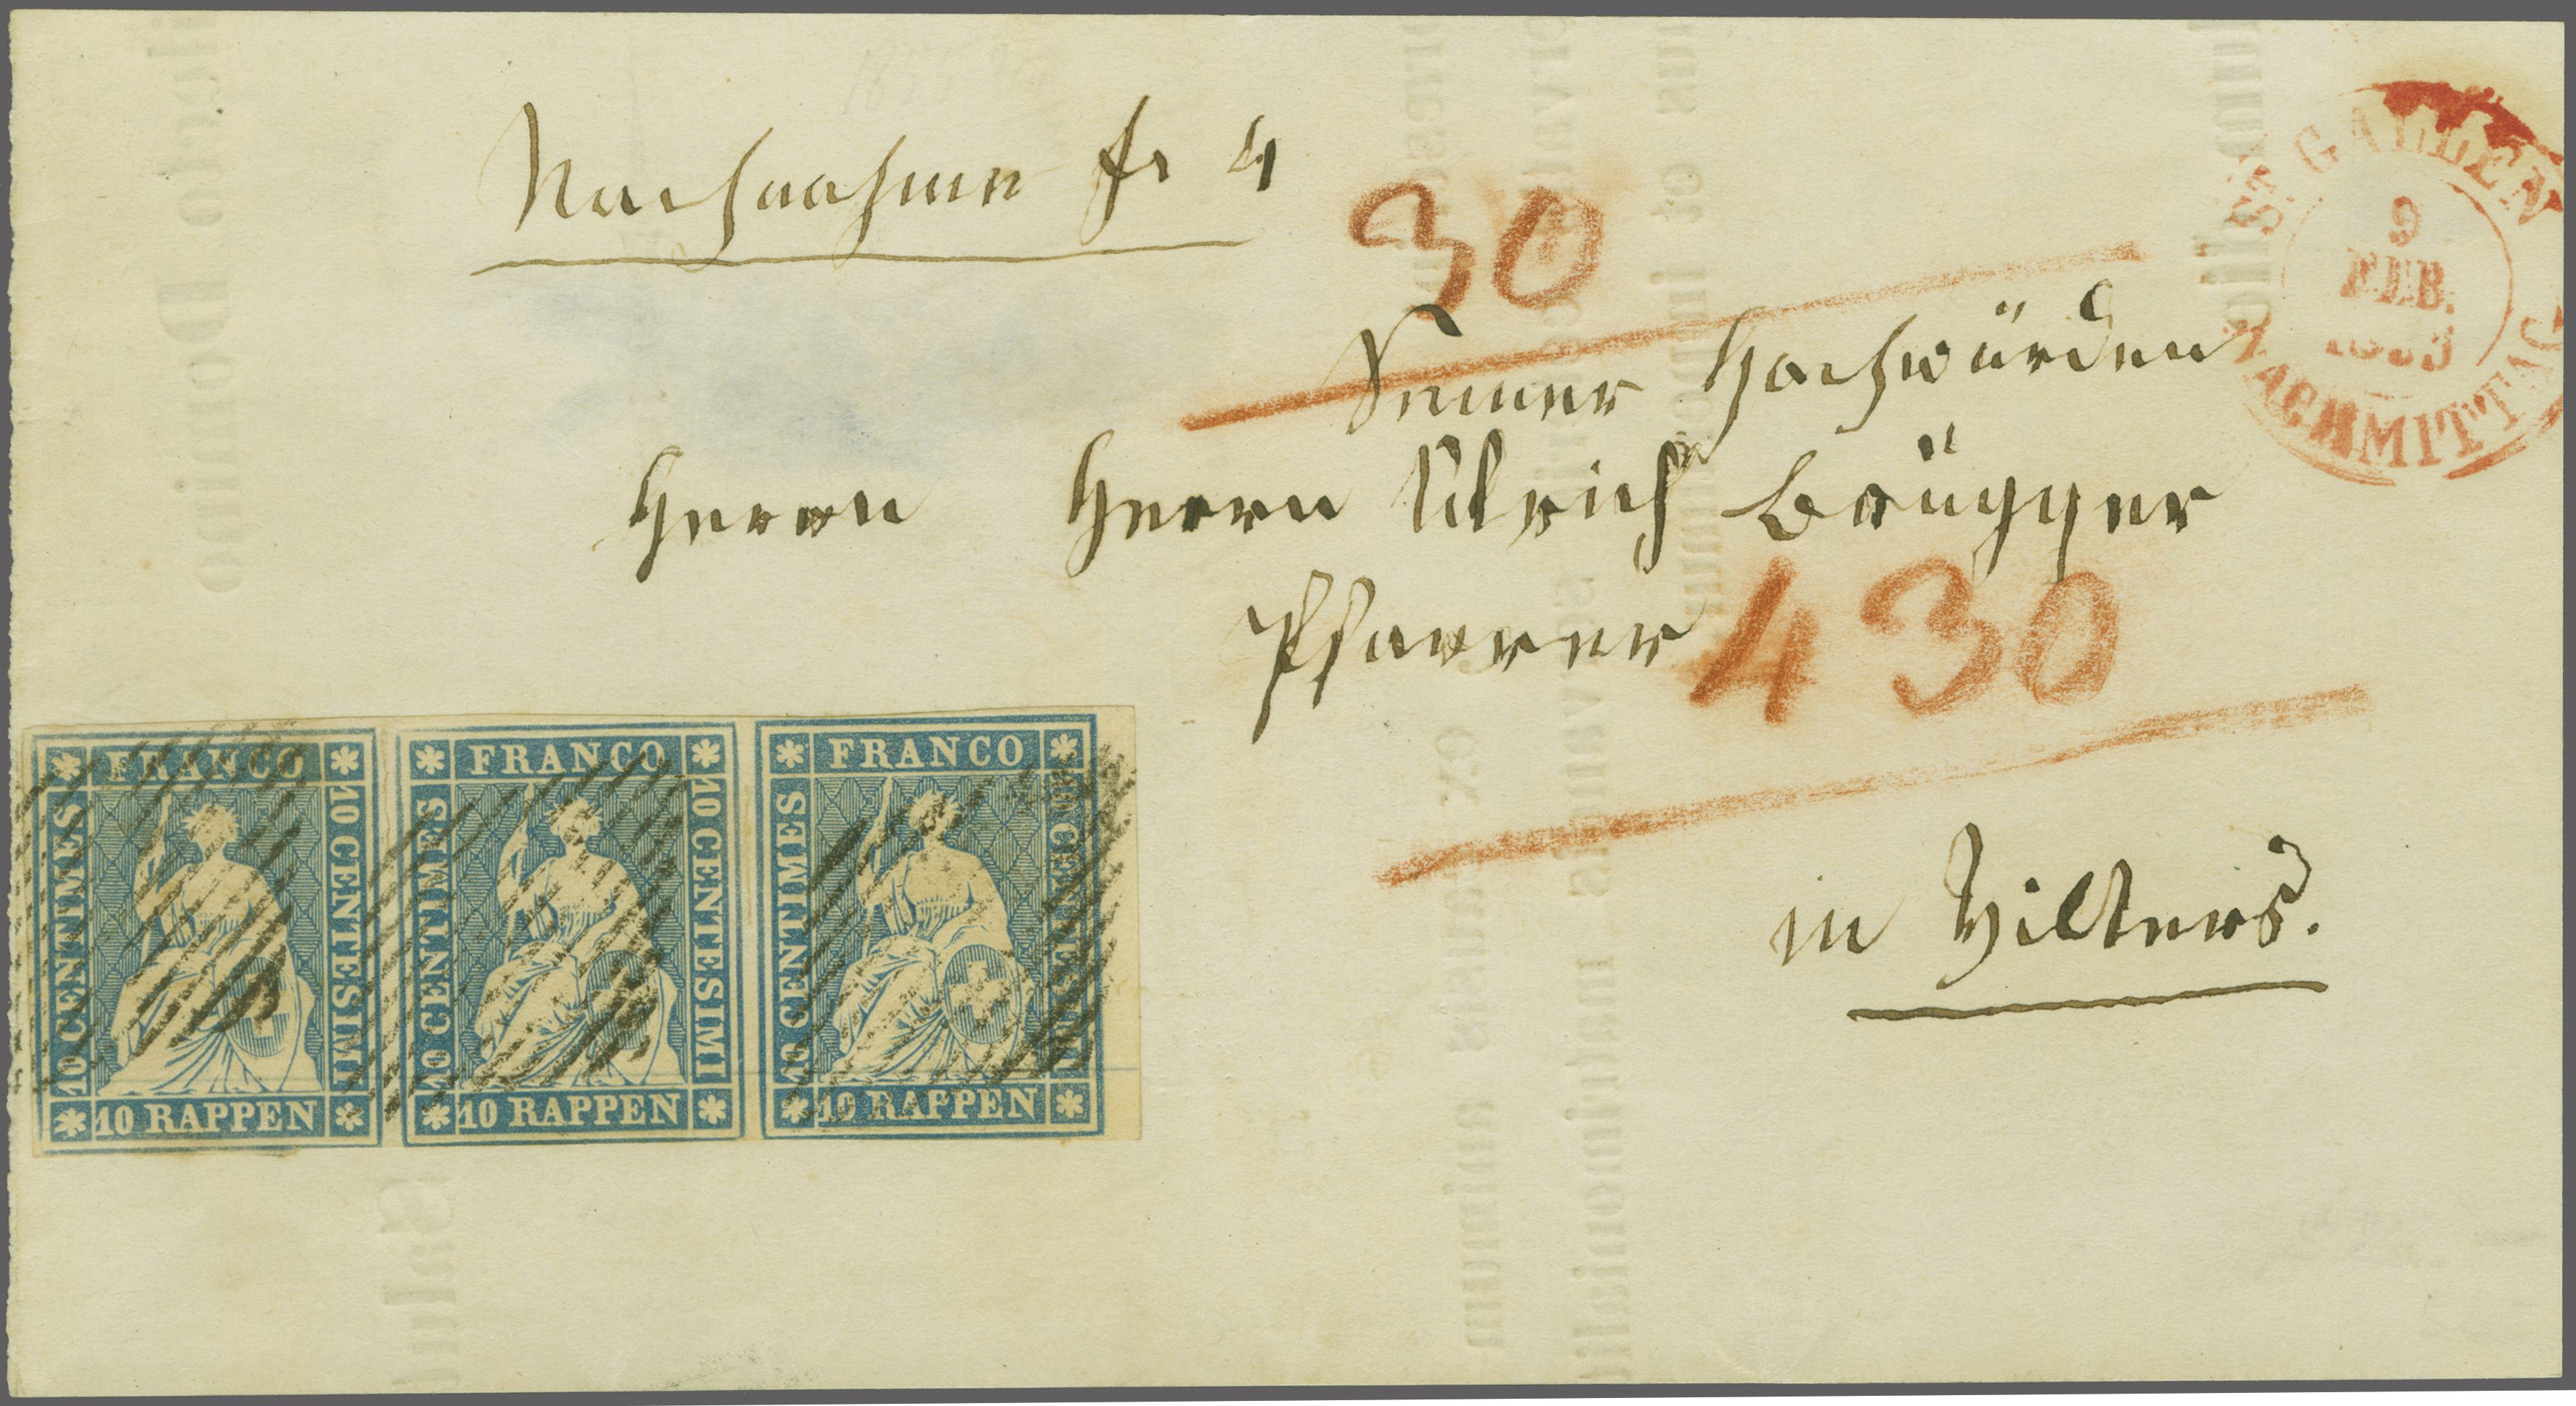 Nachnahme fr 4
30
Seiner Hochwürden
Herrn Herrn Ulrich Brügger
Pfarrer
4 30
in Vilters.
ST. GALLEN
9
FEB.
NACHMITTAG
FRANCO
10 CENTIMES
10 CENTESIMI
10 RAPPEN
FRANCO
10 CENTIMES
10 CENTESIMI
10 RAPPEN
FRANCO
10 CENTIMES
10 CENTESIMI
10 RAPPEN